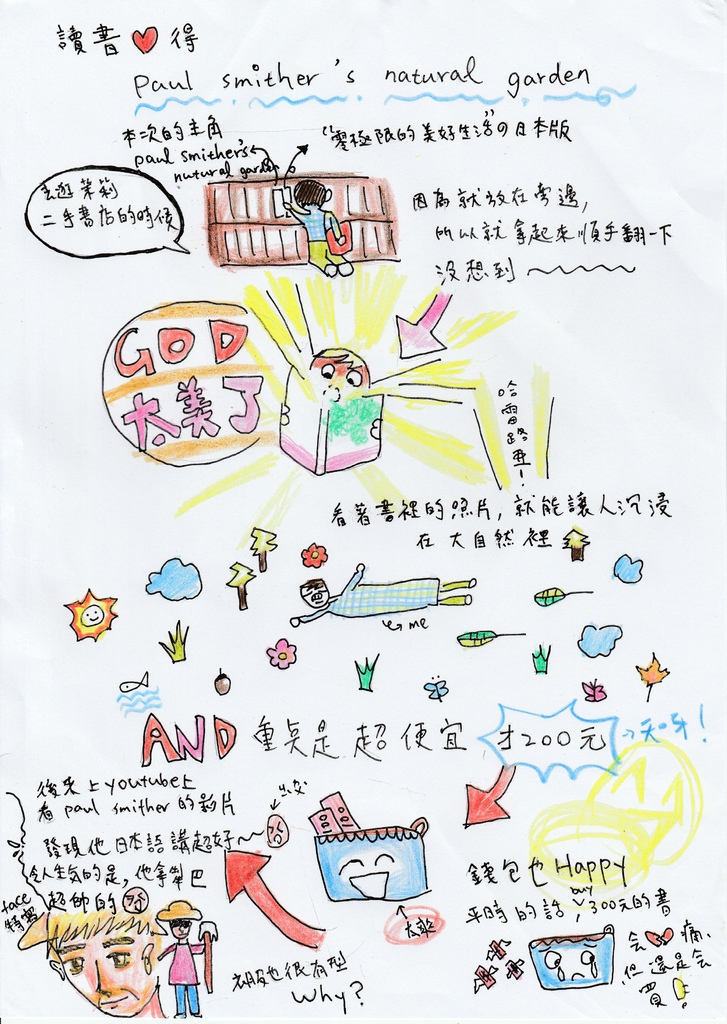 讀書 得
Paul smither's natural garden
本次的主角
paul smither's
natural garden
"零極限的美好生活"の日本版
去逛茉莉
二手書店的時候
因為就放在旁邊,
所以就拿起來順手翻一下
沒想到
GOD
太美了
哈雷路亞!
看著書裡的照片, 就能讓人沉浸
在大自然裡
me
AND 重点是超便宜 才200元 天呀!
後來上youtube上
看 paul smither 的影片
發現他日本語講超好~
令人生氣的是, 他拿犁巴
超帥的
face
特寫
衣服也很有型
Why?
錢包也Happy
平時的話, buy 300元的書
會 痛,
但還是会
買!